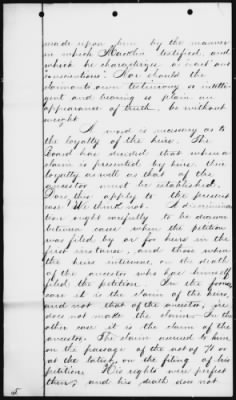 made upon him by the manner
in which testified, and
which he characterizes as "exact and
conscientious". Nor should the
claimants own testimony so intelli-
gent and bearing so plain an
appearance of truth be without
weight
A word is necessary as to
the loyalty of the heirs. The
Board has decided that when a
claim is presented by heirs their
loyalty as well as that of the
ancestor must be established.
Does this apply to the present
case? We think not. A discrimina-
tion ought carefully to be drawn
between cases when the petition
was filed by or for heirs in the
first instance, and those when
the heirs intervene on the death
of the ancestor who has himself
filed the petition. In the former
case it is the claim of the heirs,
and not that of the ancestor, he
does not make the claim. In the
other case it is the claim of the
ancestor. The claim accrued to him
on the passage of the act of 71 or
at the latest, on the filing of his
petition. His rights were perfect
then, and his death does not
5